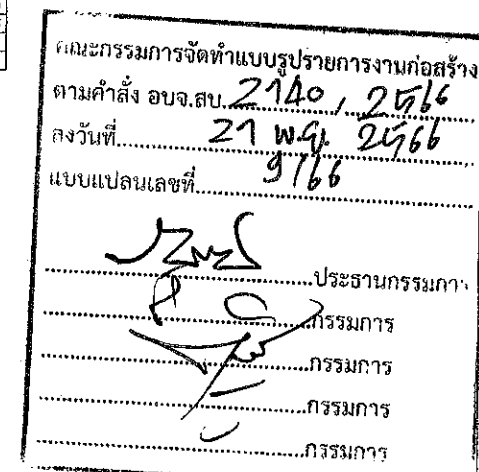 คณะกรรมการจัดทำแบบรูปรายการงานก่อสร้าง
ตามคำสั่ง อบจ.สบ. 2140 / 2566
ลงวันที่ 21 พ.ย. 2566
แบบแปลนเลขที่ 9/66
ประธานกรรมการ
กรรมการ
กรรมการ
กรรมการ
กรรมการ